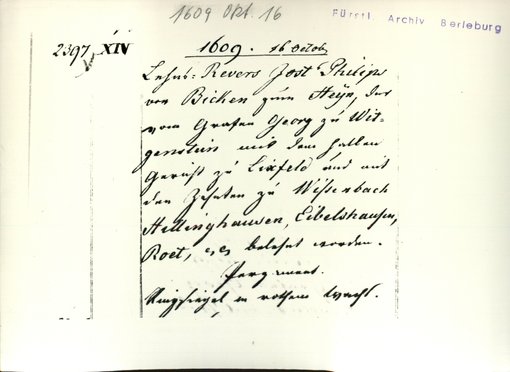 1609 Okt. 16
Fürstl. Archiv Berleburg
2397 XIV
1609. 16 Octob.
Lehns-Revers Jost Philips
von Bicken zum Heÿn, der
vom Grafen Georg zu Wit-
genstein mit dem halben
Gericht zu Lixfeld und mit
den Zehnten zu Wissenbach
Hellinghausen, Eibelshausen,
Roet, belehnt worden.
Pergament.
Ringsiegel in rothem Wachs.